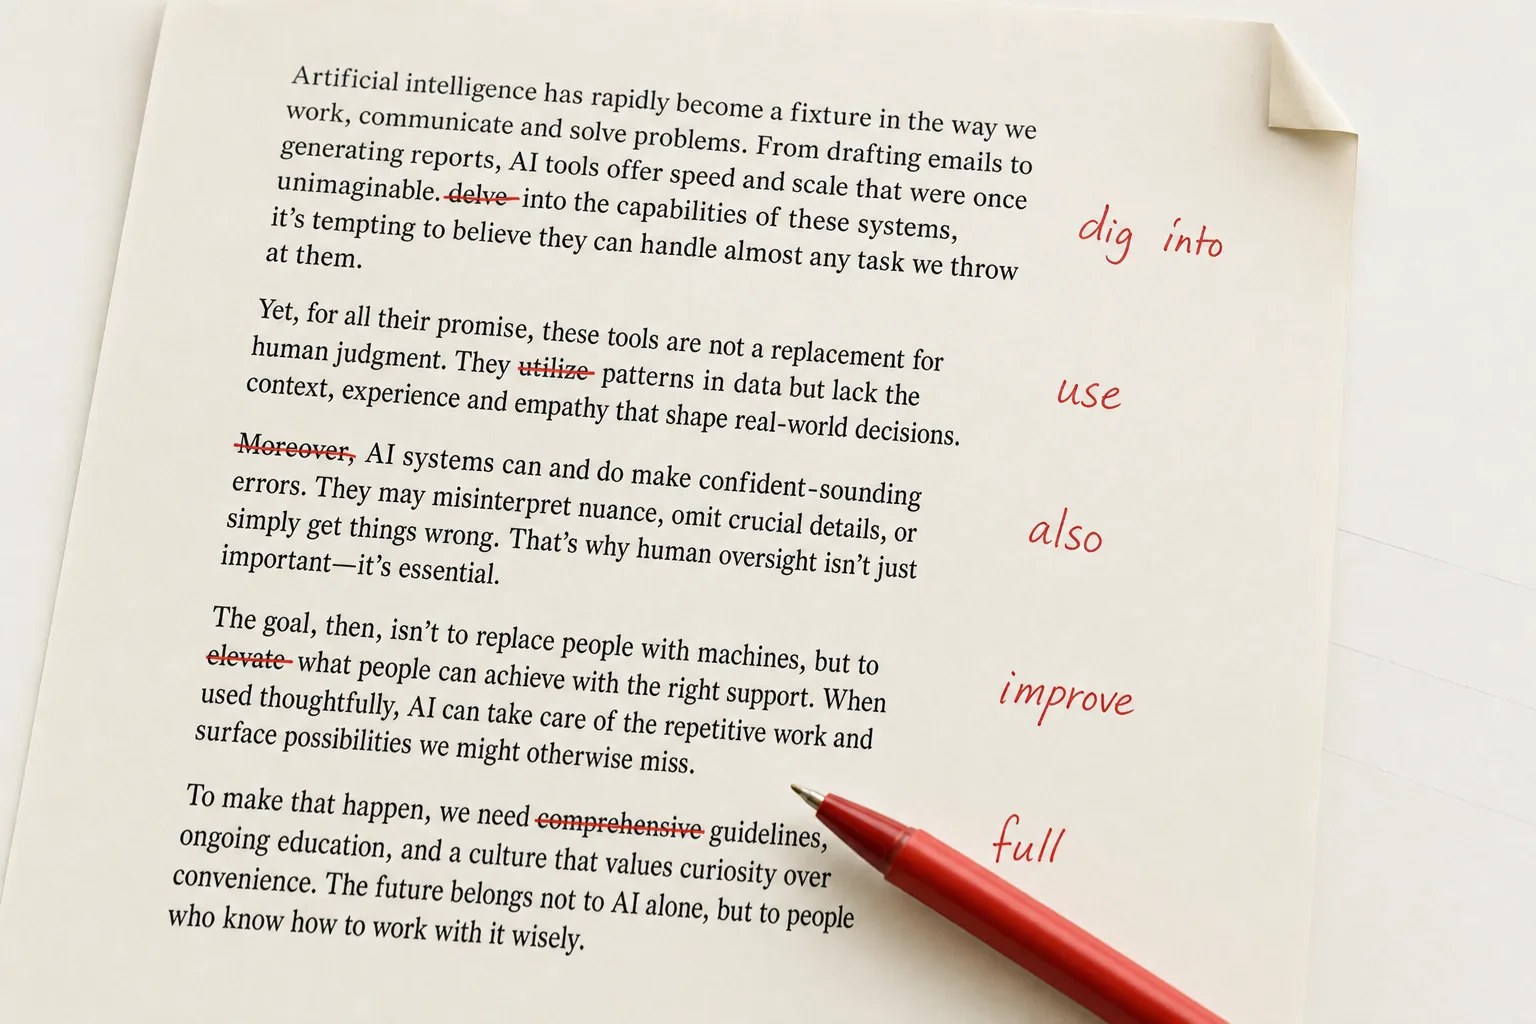 Artificial intelligence has rapidly become a fixture in the way we
work, communicate and solve problems. From drafting emails to
generating reports, AI tools offer speed and scale that were once
unimaginable. delve into the capabilities of these systems,
dig into
it’s tempting to believe they can handle almost any task we throw
at them.
Yet, for all their promise, these tools are not a replacement for
human judgment. They utilize patterns in data but lack the
use
context, experience and empathy that shape real-world decisions.
Moreover, AI systems can and do make confident-sounding
also
errors. They may misinterpret nuance, omit crucial details, or
simply get things wrong. That’s why human oversight isn’t just
important—it’s essential.
The goal, then, isn’t to replace people with machines, but to
elevate what people can achieve with the right support. When
improve
used thoughtfully, AI can take care of the repetitive work and
surface possibilities we might otherwise miss.
To make that happen, we need comprehensive guidelines,
full
ongoing education, and a culture that values curiosity over
convenience. The future belongs not to AI alone, but to people
who know how to work with it wisely.